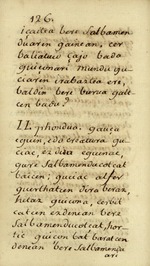 126.
içaitea bere Salbamen
duaren gainean, cer
baliatuco çajo bada
guiçonari mundu gu
ciaren irabaztea eri,
baldin bere burua galt
cen badu?
II. phondua. gauça
eguin, edo creatura gu
ciac, ez dira eguinac,
gure Salbamenducotçat
baicen; guciac alfer
guerthatcen dira beraz,
hutaz guiçona, cerbit
catcen ezdenean bere
Salbamenducotçat, hor
tic guiçon bat baratcen
denean bere Salbamendu
ari